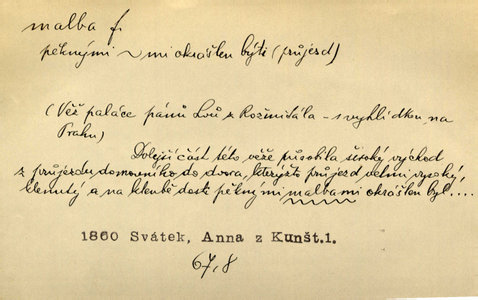 malba f.
pěknými ~mi okrášlen býti (průjezd)
(Věž paláce pánů Lvů z Rožmitála – s vyhlídkou na
Prahu)
Dolejší část této věže působila široký východ
z průjezdu domovního do dvora, kterýžto průjezd velmi vysoký,
klenutý a na klenbě dosti pěknými malbami okrášlen byl....
1860 Svátek, Anna z Kunšt.1.
67,8